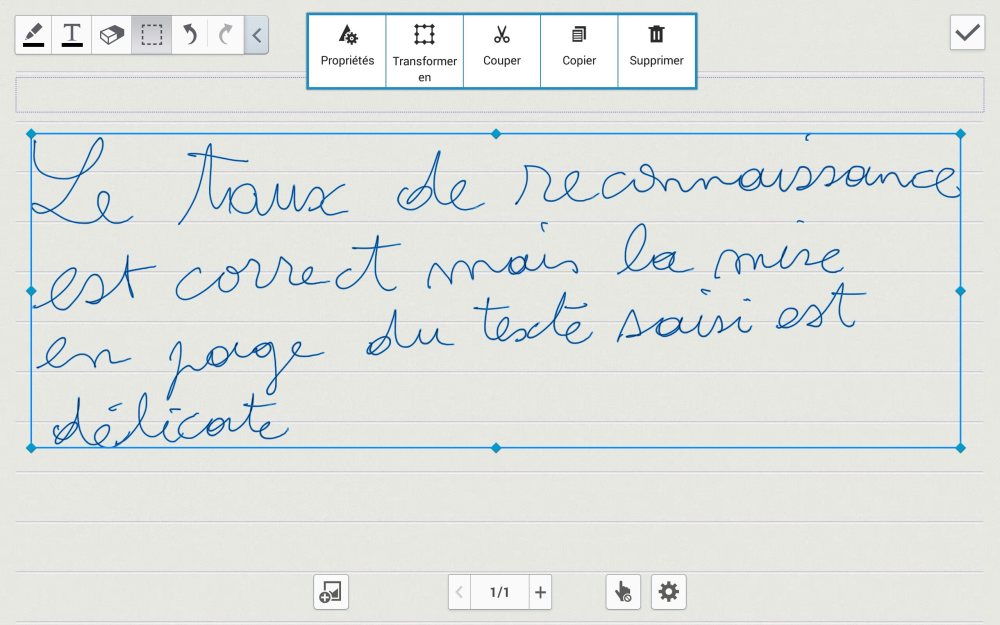 T
Propriétés Transformer en Couper Copier Supprimer
Le taux de reconnaissance
est correct mais la mise
en page du texte saisi est
délicate
1/1